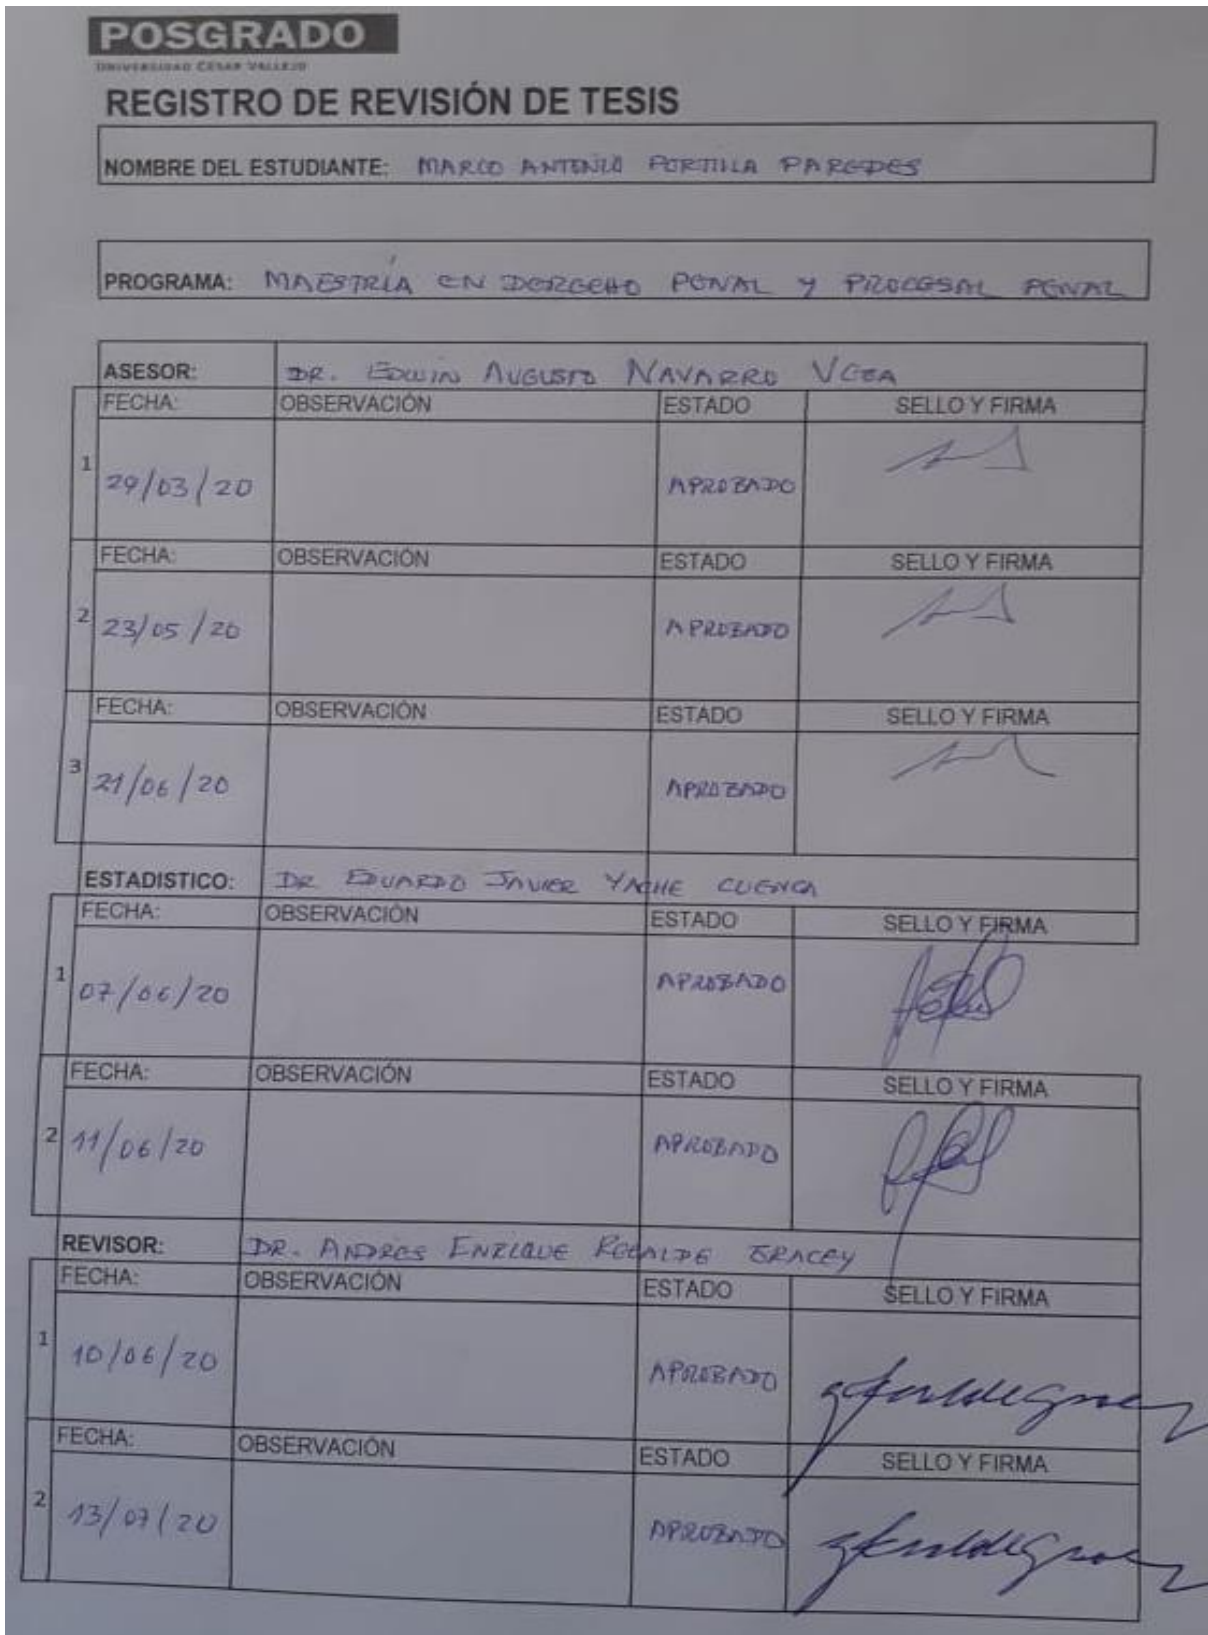 POSGRADO
UNIVERSIDAD CÉSAR VALLEJO
REGISTRO DE REVISIÓN DE TESIS
NOMBRE DEL ESTUDIANTE: MARCO ANTONIO PORTILLA PAREDES
PROGRAMA: MAESTRÍA EN DERECHO PENAL Y PROCESAL PENAL
ASESOR: DR. EDWIN AUGUSTO NAVARRO
FECHA: OBSERVACIÓN ESTADO SELLO Y FIRMA
1 29/03/20 APROBADO
FECHA: OBSERVACIÓN ESTADO SELLO Y FIRMA
2 23/05/20 APROBADO
FECHA: OBSERVACIÓN ESTADO SELLO Y FIRMA
3 21/06/20 APROBADO
ESTADISTICO: DR EDUARDO JAVIER YACHE CUENCA
FECHA: OBSERVACIÓN ESTADO SELLO Y FIRMA
1 07/06/20 APROBADO
FECHA: OBSERVACIÓN ESTADO SELLO Y FIRMA
2 11/06/20 APROBADO
REVISOR: DR. ANDRES ENRIQUE RECALDE GRACEY
FECHA: OBSERVACIÓN ESTADO SELLO Y FIRMA
1 10/06/20 APROBADO
FECHA: OBSERVACIÓN ESTADO SELLO Y FIRMA
2 13/07/20 APROBADO